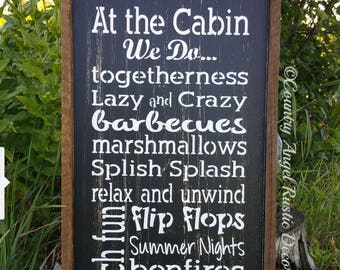 At the Cabin
We Do...
togetherness
Lazy and Crazy
barbecues
marshmallows
Splish Splash
relax and unwind
fun
flip flops
Summer Nights
bonfires
©Country Angel Rustic Decor